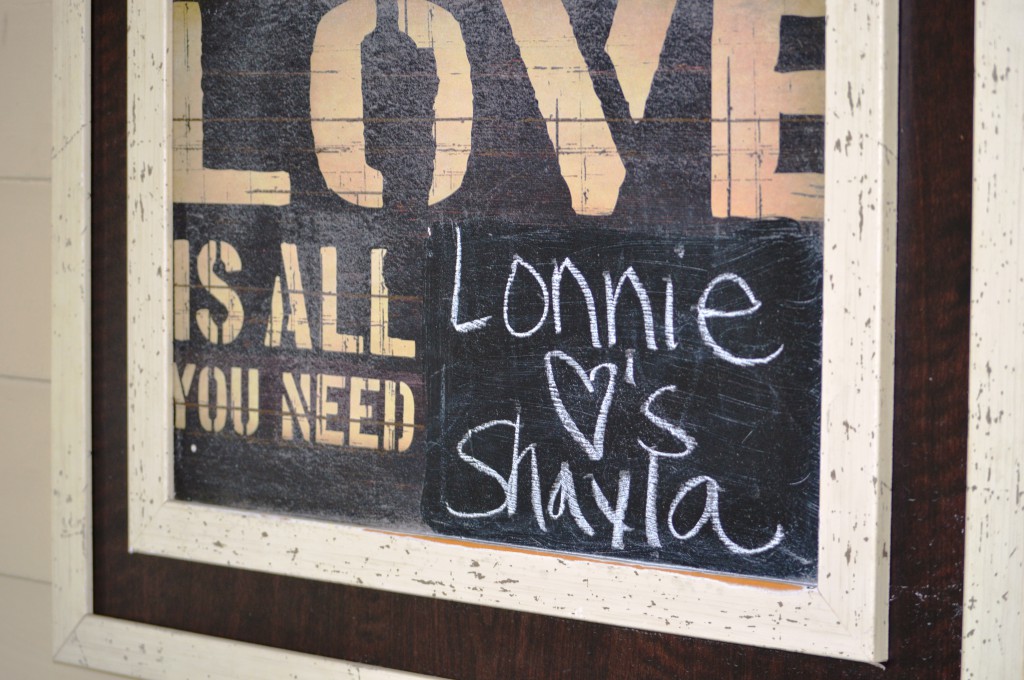 LOVE
IS ALL
YOU NEED
Lonnie
♡'s
Shayla